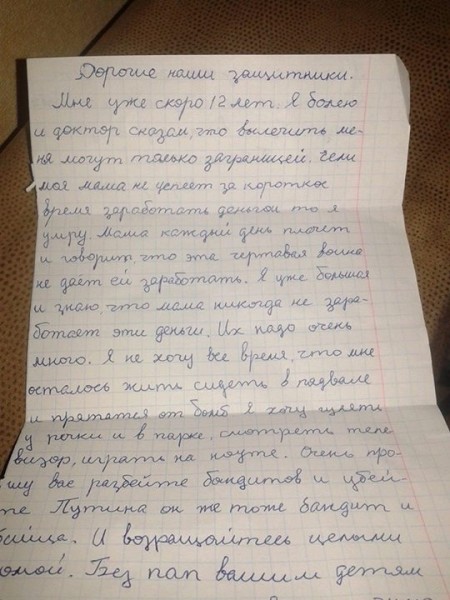 Дорогие наши защитники.
Мне уже скоро 12 лет. Я болею
и доктор сказал, что вылечить ме-
ня могут только заграницей. Если
моя мама не успеет за короткое
время заработать деньги то я
умру. Мама каждый день плачет
и говорит, что эта чертавая война
не даёт ей заработать. Я уже большая
и знаю, что мама никогда не зара-
ботает эти деньги. Их надо очень
много. Я не хочу все время, что мне
осталось жить сидеть в подвале
и прятатся от бомб я хочу гулять
у речки и в парке, смотреть теле
визор, играть на ноуте. Очень про-
шу вас разбейте бандитов и убей-
те Путина он же тоже бандит и
бийца. И возращайтесь целыми
омой. Без пап вашим детям